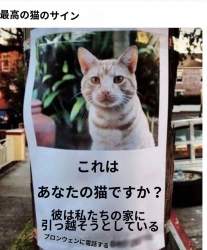 最高の猫のサイン
これは
あなたの猫ですか？
彼は私たちの家に
引っ越そうとしている
ブロンウェンに電話する